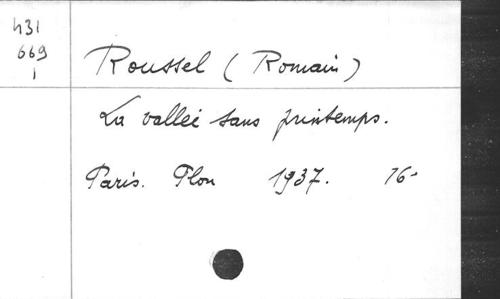 431
669
1
Roussel (Romain)
La vallée sans printemps.
Paris. Plon 1937. 16°